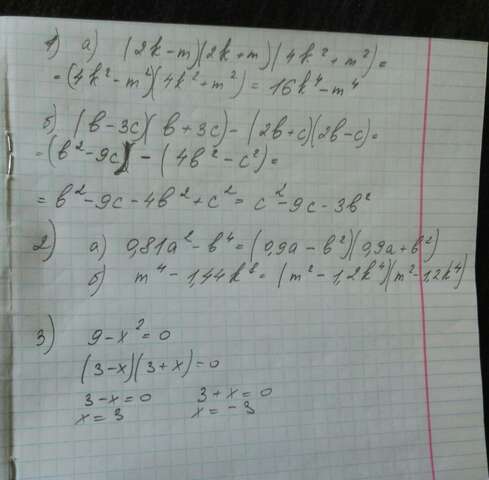 1) а) (2k-m)(2k+m)(4k²+m²)=
=(4k²-m²)(4k²+m²)=16k⁴-m⁴
б) (в-3с)(в+3с)-(2в+с)(2в-с)=
=(в²-9с)-(4в²-с²)=
=в²-9с-4в²+с²=с²-9с-3в²
2) а) 0,81а²-в⁴=(0,9а-в²)(0,9а+в²)
б) m⁴-1,44k⁸=(m²-1,2k⁴)(m²-1,2k⁴)
3) 9-x²=0
(3-x)(3+x)=0
3-x=0 3+x=0
x=3 x=-3